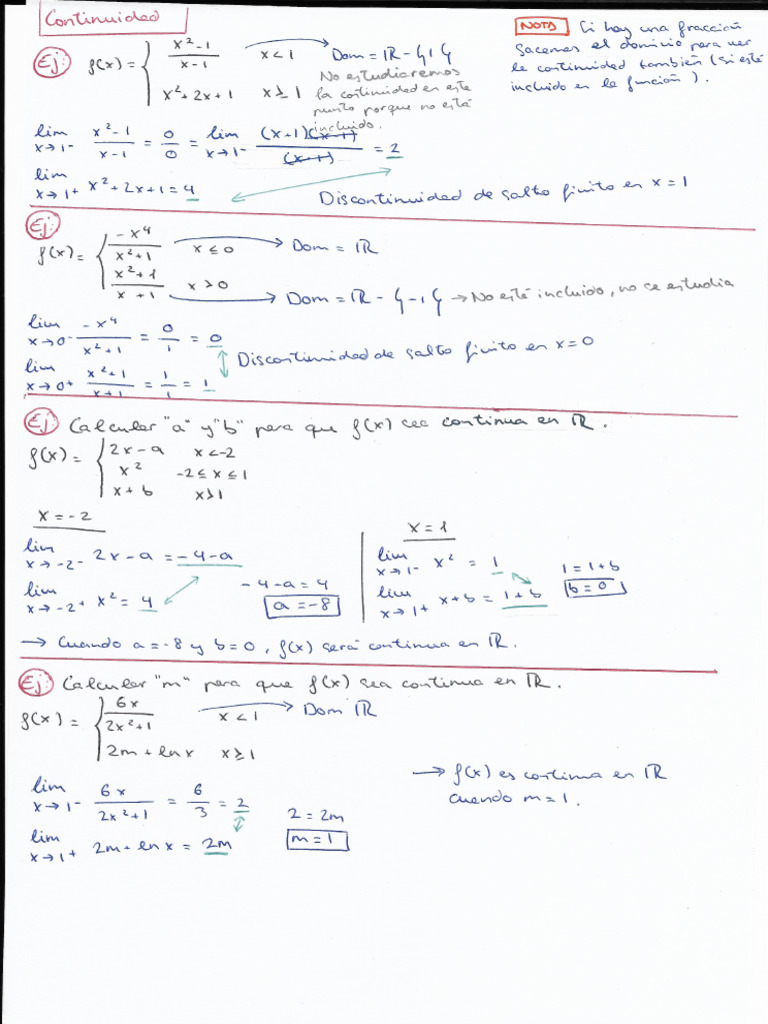 Continuidad
NOTA Si hay una fracción
sacamos el dominio para ver
la continuidad también (si está
incluido en la función).
Ej f(x) = { x²-1 / x-1   x<1 → Dom = ℝ - {1}
x²+2x+1   x≥1
No estudiaremos
la continuidad en este
punto porque no está
incluido.
lim x→1⁻ x²-1 / x-1 = 0/0 = lim x→1⁻ (x+1)(x-1) / (x-1) = 2
lim x→1+ x²+2x+1 = 4
Discontinuidad de salto finito en x=1
Ej
f(x) = { -x⁴ / x²+1   x≤0 → Dom = ℝ
x²+1 / x+1   x>0 → Dom = ℝ - {-1} → No está incluido, no se estudia
lim x→0⁻ -x⁴ / x²+1 = 0/1 = 0
Discontinuidad de salto finito en x=0
lim x→0⁺ x²+1 / x+1 = 1/1 = 1
Ej Calcular "a" y "b" para que f(x) sea continua en ℝ.
f(x) = { 2x-a   x<-2
x²   -2≤x≤1
x+b   x>1
x=-2
lim x→-2⁻ 2x-a = -4-a
lim x→-2+ x² = 4
-4-a=4
a=-8
x=1
lim x→1⁻ x² = 1
lim x→1+ x+b = 1+b
1=1+b
b=0
→ Cuando a=-8 y b=0, f(x) será continua en ℝ.
Ej Calcular "m" para que f(x) sea continua en ℝ.
f(x) = { 6x / 2x²+1   x<1 → Dom ℝ
2m+lnx   x≥1
lim x→1⁻ 6x / 2x²+1 = 6/3 = 2
lim x→1+ 2m+lnx = 2m
2=2m
m=1
→ f(x) es continua en ℝ
cuando m=1.